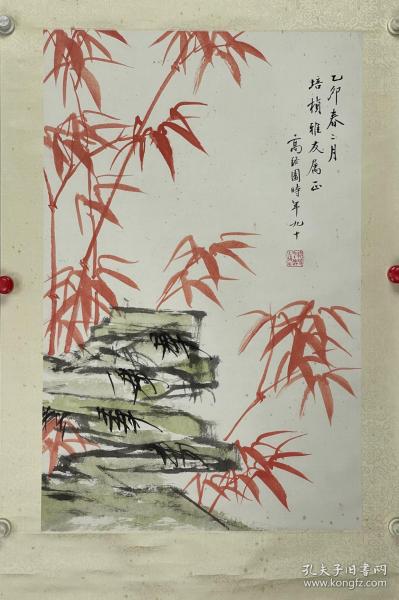 乙卯春二月
培桢雅友属正
高络园时年九十
孔夫子旧书网
www.kongfz.com